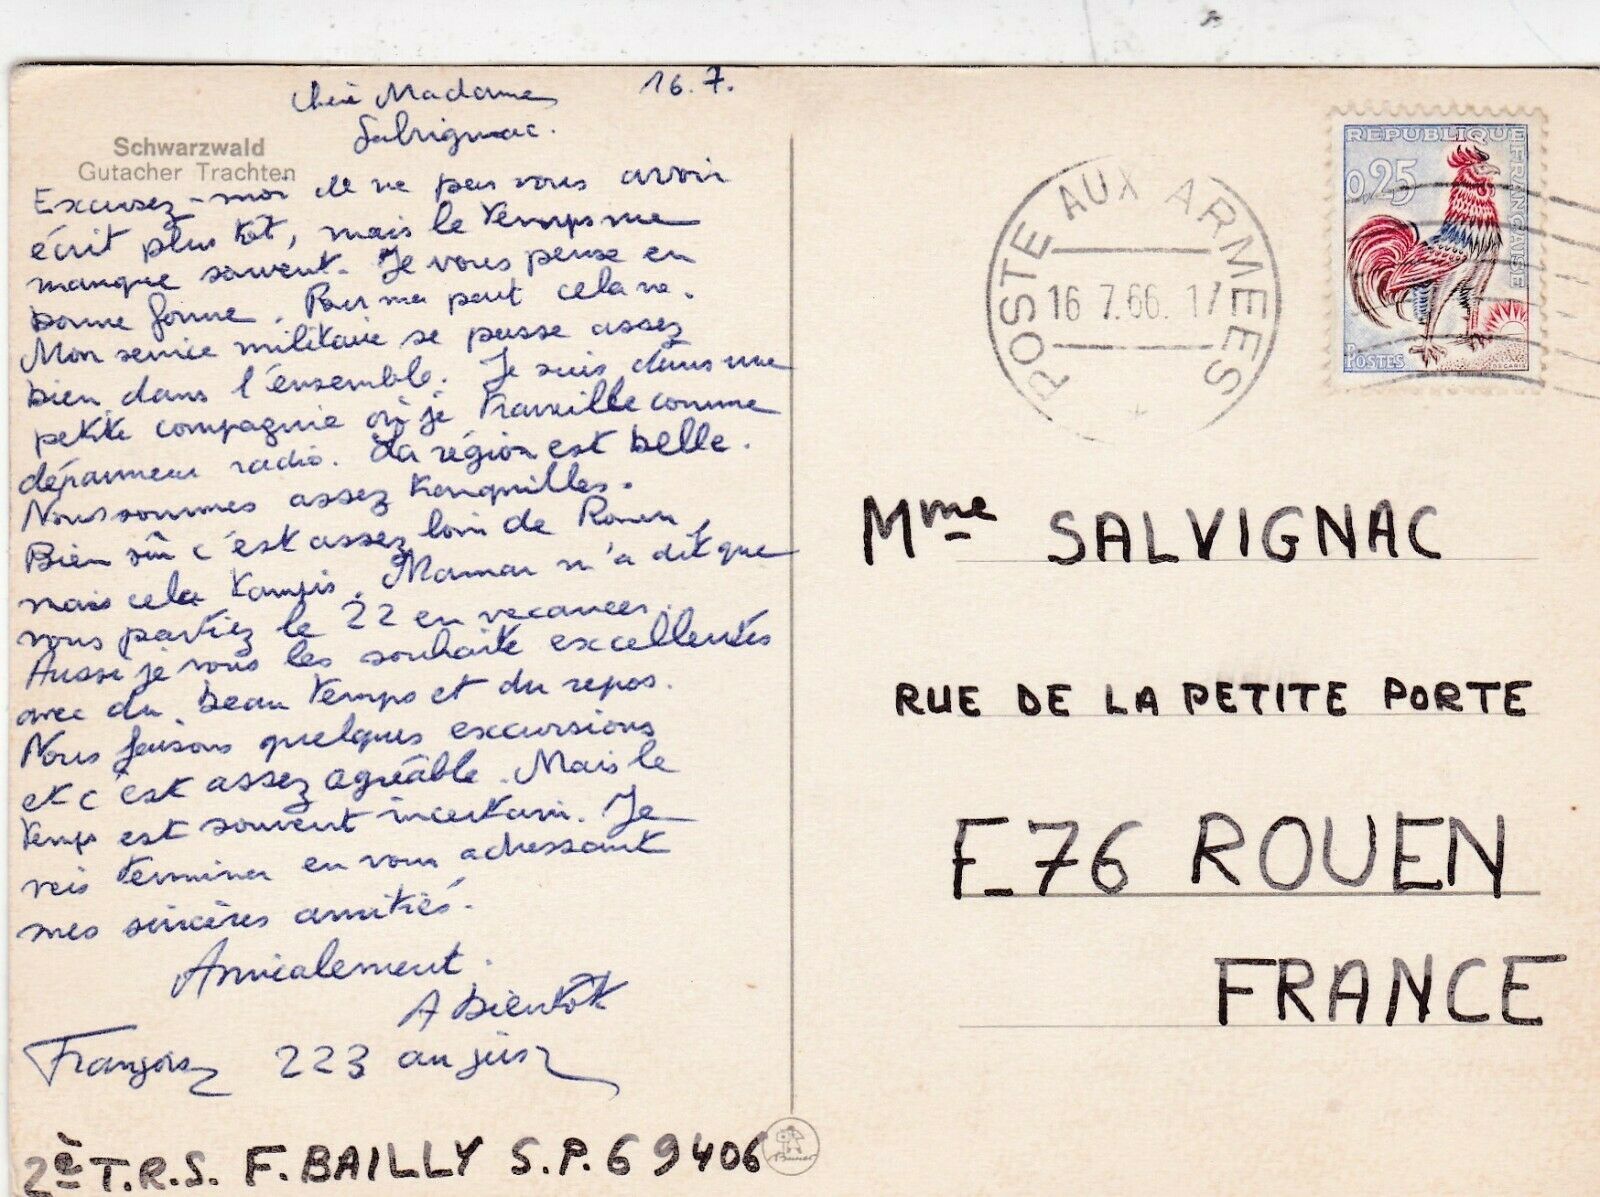 Chère Madame 16.7.
Salvignac.
Schwarzwald
Gutacher Trachten
Excusez-moi de ne pas vous avoir
écrit plus tôt, mais le temps me
manque souvent. Je vous pense en
bonne forme. Pour ma part cela va.
Mon service militaire se passe assez
bien dans l'ensemble. Je suis dans une
petite compagnie où je travaille comme
dépanneur radio. La région est belle.
Nous sommes assez tranquilles.
Bien sûr c'est assez loin de Rouen,
mais cela tampis. Maman m'a dit que
vous partiez le 22 en vacances.
Aussi je vous les souhaite excellentes
avec du beau temps et du repos.
Nous faisons quelques excursions
et c'est assez agréable. Mais le
temps est souvent incertain. Je
vais terminer en vous adressant
mes sincères amitiés.
Amicalement.
A bientôt
François 223 au jus
2è T.R.S. F. BAILLY S.P. 69406
POSTE AUX ARMEES
16 7.66. 17
REPUBLIQUE FRANÇAISE
0,25
POSTES
DECARIS
Mme SALVIGNAC
RUE DE LA PETITE PORTE
F_76 ROUEN
FRANCE